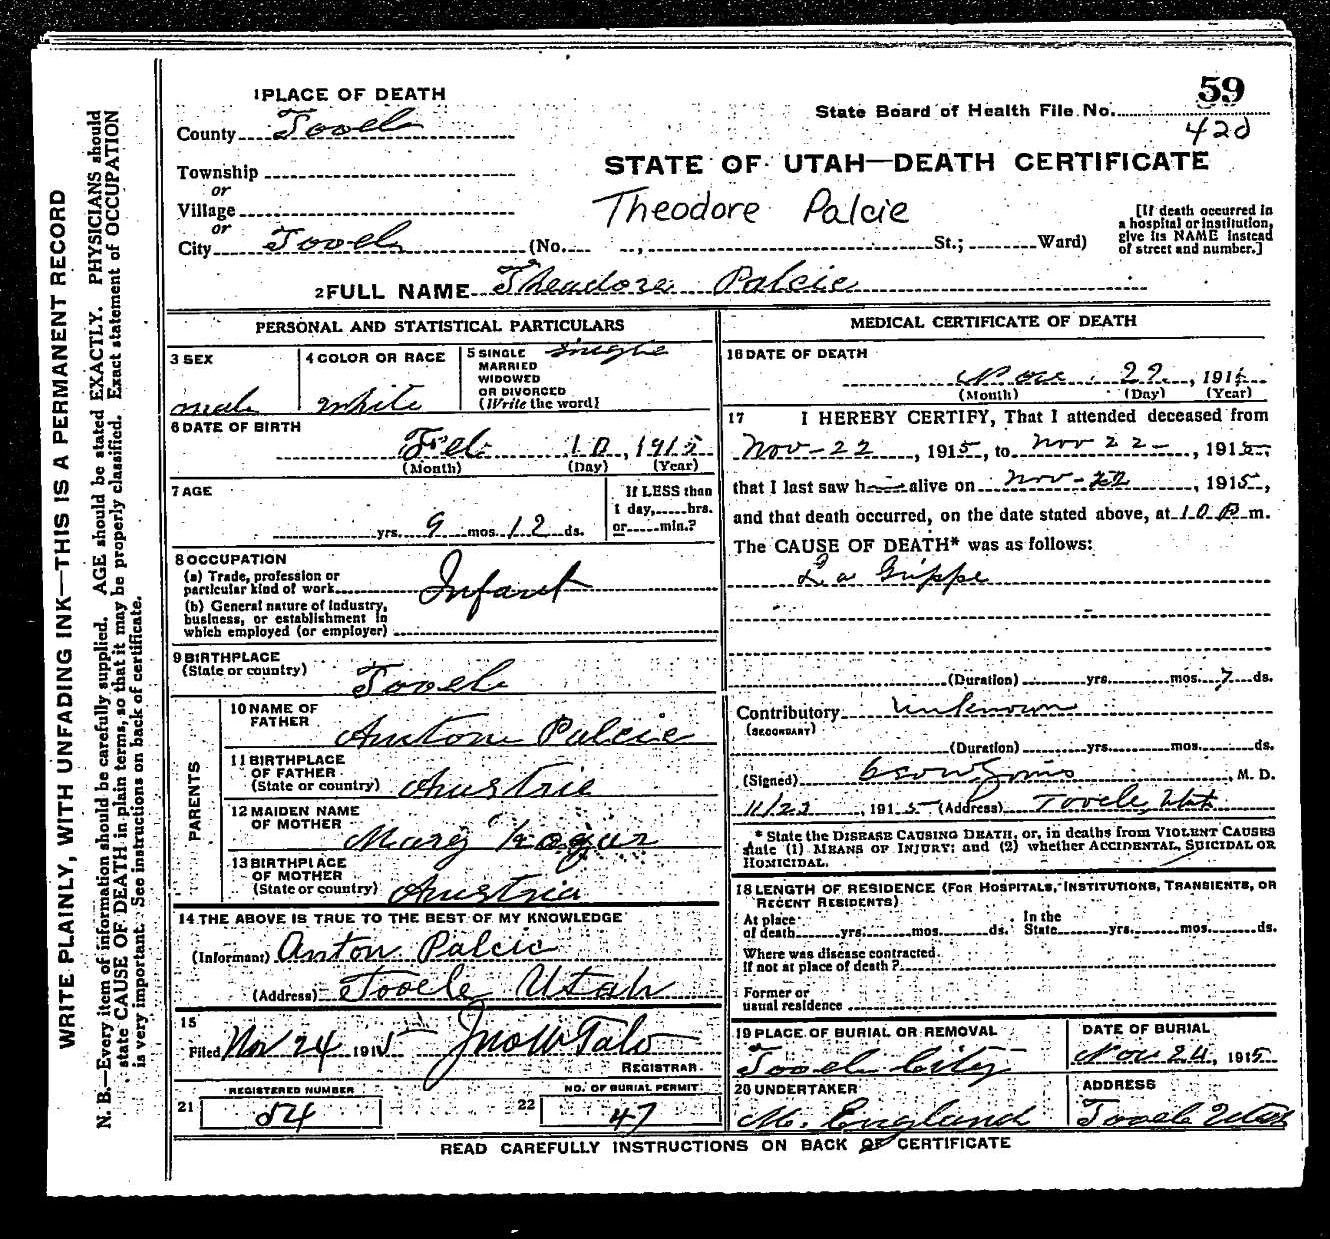 WRITE PLAINLY, WITH UNFADING INK—THIS IS A PERMANENT RECORD
N. B.—Every item of information should be carefully supplied. AGE should be stated EXACTLY. PHYSICIANS should
state CAUSE OF DEATH in plain terms, so that it may be properly classified. Exact statement of OCCUPATION
is very important. See instructions on back of certificate.
1 PLACE OF DEATH
County Tooele
Township
or
Village
or
City Tooele (No. , St.; Ward)
State Board of Health File No. 59
420
STATE OF UTAH—DEATH CERTIFICATE
Theodore Palcie
[If death occurred in
a hospital or institution,
give its NAME instead
of street and number.]
2 FULL NAME Theodore Palcic
PERSONAL AND STATISTICAL PARTICULARS
3 SEX
male
4 COLOR OR RACE
white
5 SINGLE
MARRIED
WIDOWED
OR DIVORCED
(Write the word)
single
6 DATE OF BIRTH
Feb 10, 1915
(Month) (Day) (Year)
7 AGE
yrs. 9 mos. 12 ds.
If LESS than
1 day, hrs.
or min.?
8 OCCUPATION
(a) Trade, profession or
particular kind of work Infant
(b) General nature of industry,
business, or establishment in
which employed (or employer)
9 BIRTHPLACE
(State or country) Tooele
PARENTS
10 NAME OF
FATHER Anton Palcic
11 BIRTHPLACE
OF FATHER
(State or country) Austria
12 MAIDEN NAME
OF MOTHER Mary
13 BIRTHPLACE
OF MOTHER
(State or country) Austria
14 THE ABOVE IS TRUE TO THE BEST OF MY KNOWLEDGE
(Informant) Anton Palcic
(Address) Tooele Utah
15
Filed Nov 24 1915
REGISTRAR.
REGISTERED NUMBER
21 54
NO. OF BURIAL PERMIT
22 47
MEDICAL CERTIFICATE OF DEATH
16 DATE OF DEATH
Nov. 22, 1915
(Month) (Day) (Year)
17 I HEREBY CERTIFY, That I attended deceased from
Nov-22, 1915, to Nov 22-, 1915,
that I last saw h alive on Nov-22, 1915,
and that death occurred, on the date stated above, at 10 P m.
The CAUSE OF DEATH* was as follows:
La Grippe
(Duration) yrs. mos. 7 ds.
Contributory Unknown
(SECONDARY)
(Duration) yrs. mos. ds.
(Signed) , M. D.
11/22, 1915 (Address) Tooele, Utah
* State the DISEASE CAUSING DEATH, or, in deaths from VIOLENT CAUSES
state (1) MEANS OF INJURY; and (2) whether ACCIDENTAL, SUICIDAL OR
HOMICIDAL.
18 LENGTH OF RESIDENCE (FOR HOSPITALS, INSTITUTIONS, TRANSIENTS, OR
RECENT RESIDENTS)
At place
of death yrs. mos. ds.
In the
State yrs. mos. ds.
Where was disease contracted.
If not at place of death?
Former or
usual residence
19 PLACE OF BURIAL OR REMOVAL
Tooele City
DATE OF BURIAL
Nov 24, 1915
20 UNDERTAKER
M. England
ADDRESS
Tooele Utah
READ CAREFULLY INSTRUCTIONS ON BACK OF CERTIFICATE